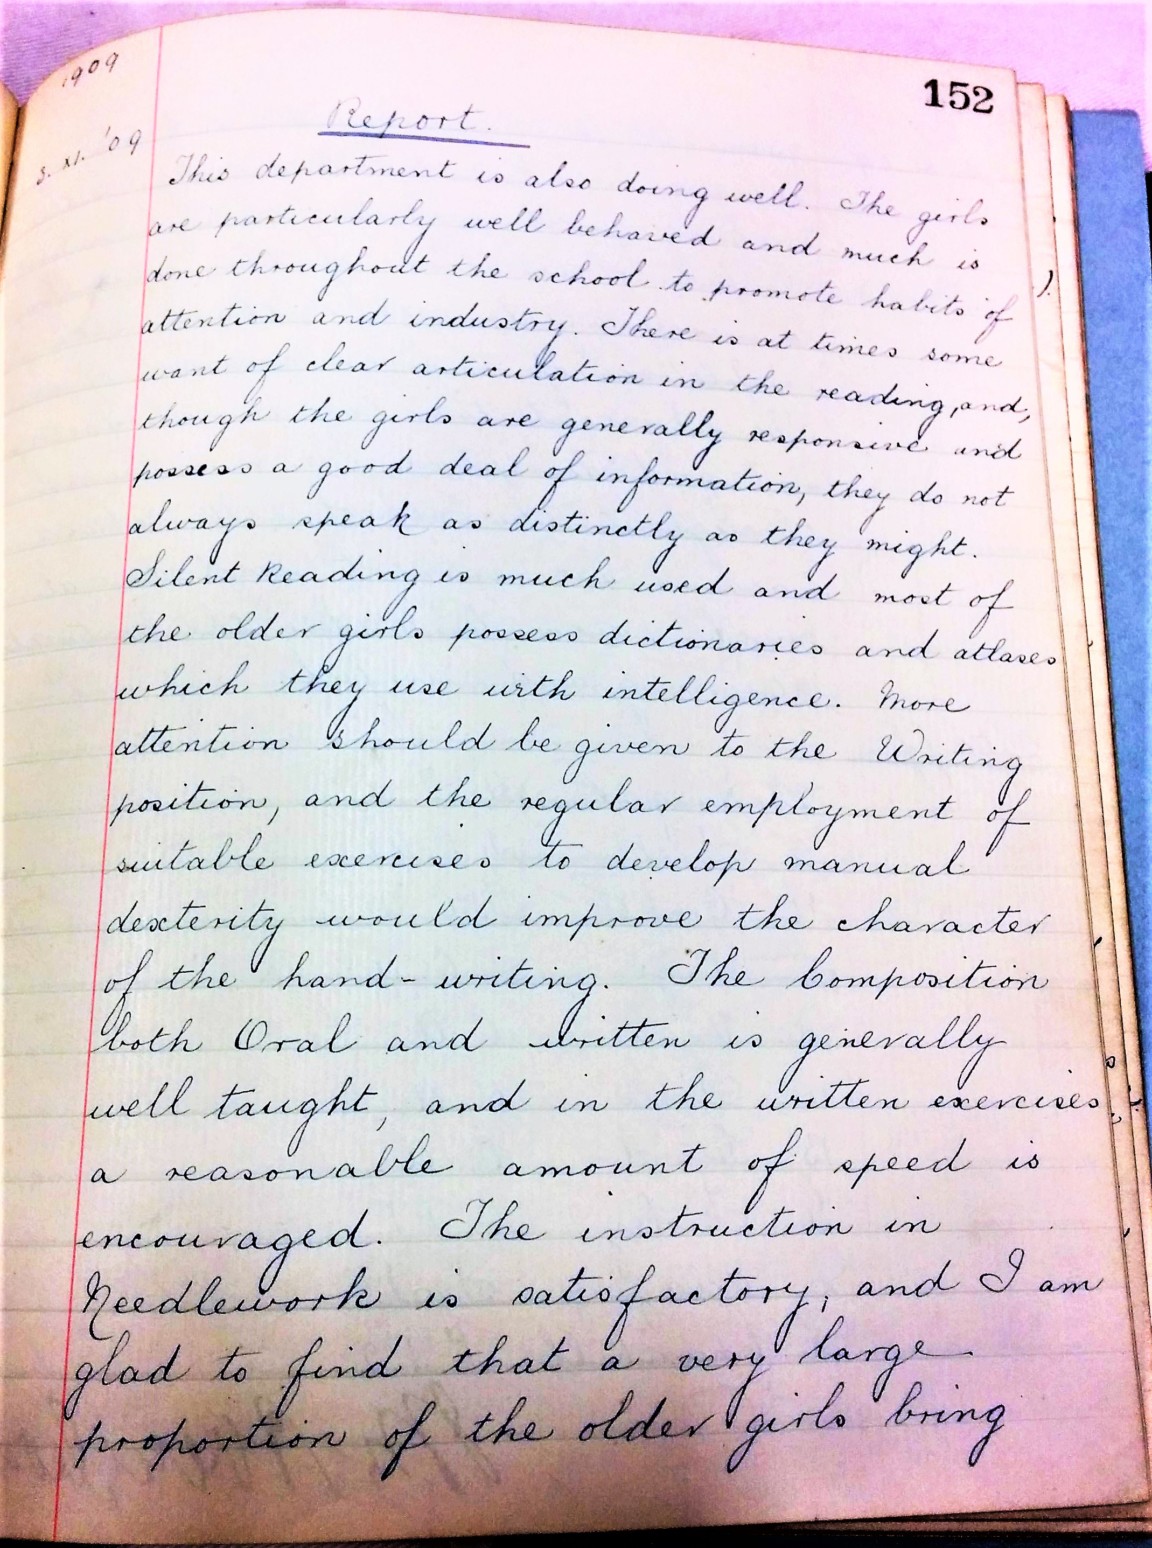 1909
152
Report.
3. XI. '09
This department is also doing well. The girls
are particularly well behaved and much is
done throughout the school to promote habits of
attention and industry. There is at times some
want of clear articulation in the reading, and,
though the girls are generally responsive and
possess a good deal of information, they do not
always speak as distinctly as they might.
Silent Reading is much used and most of
the older girls possess dictionaries and atlases
which they use with intelligence. More
attention should be given to the Writing
position, and the regular employment of
suitable exercises to develop manual
dexterity would improve the character
of the hand-writing. The Composition
both Oral and written is generally
well taught, and in the written exercises
a reasonable amount of speed is
encouraged. The instruction in
Needlework is satisfactory, and I am
glad to find that a very large
proportion of the older girls bring